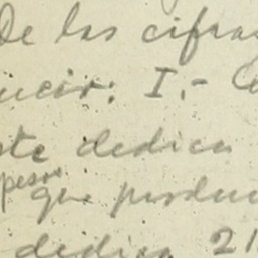 De las cifras
ucir: I.-
ste dedica
pesos
que produc
dedica 21